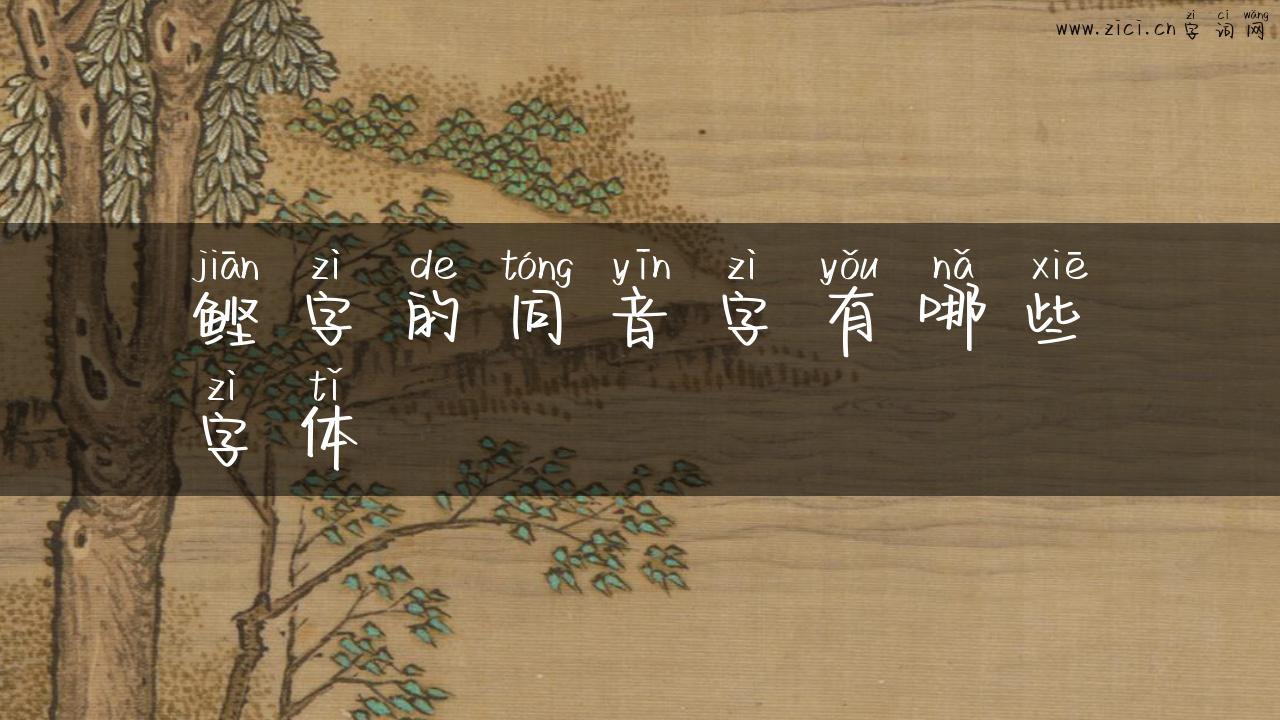 zì cí wǎng
www.zici.cn 字词网
jiān zì de tóng yīn zì yǒu nǎ xiē
鲣字的同音字有哪些
zì tǐ
字体